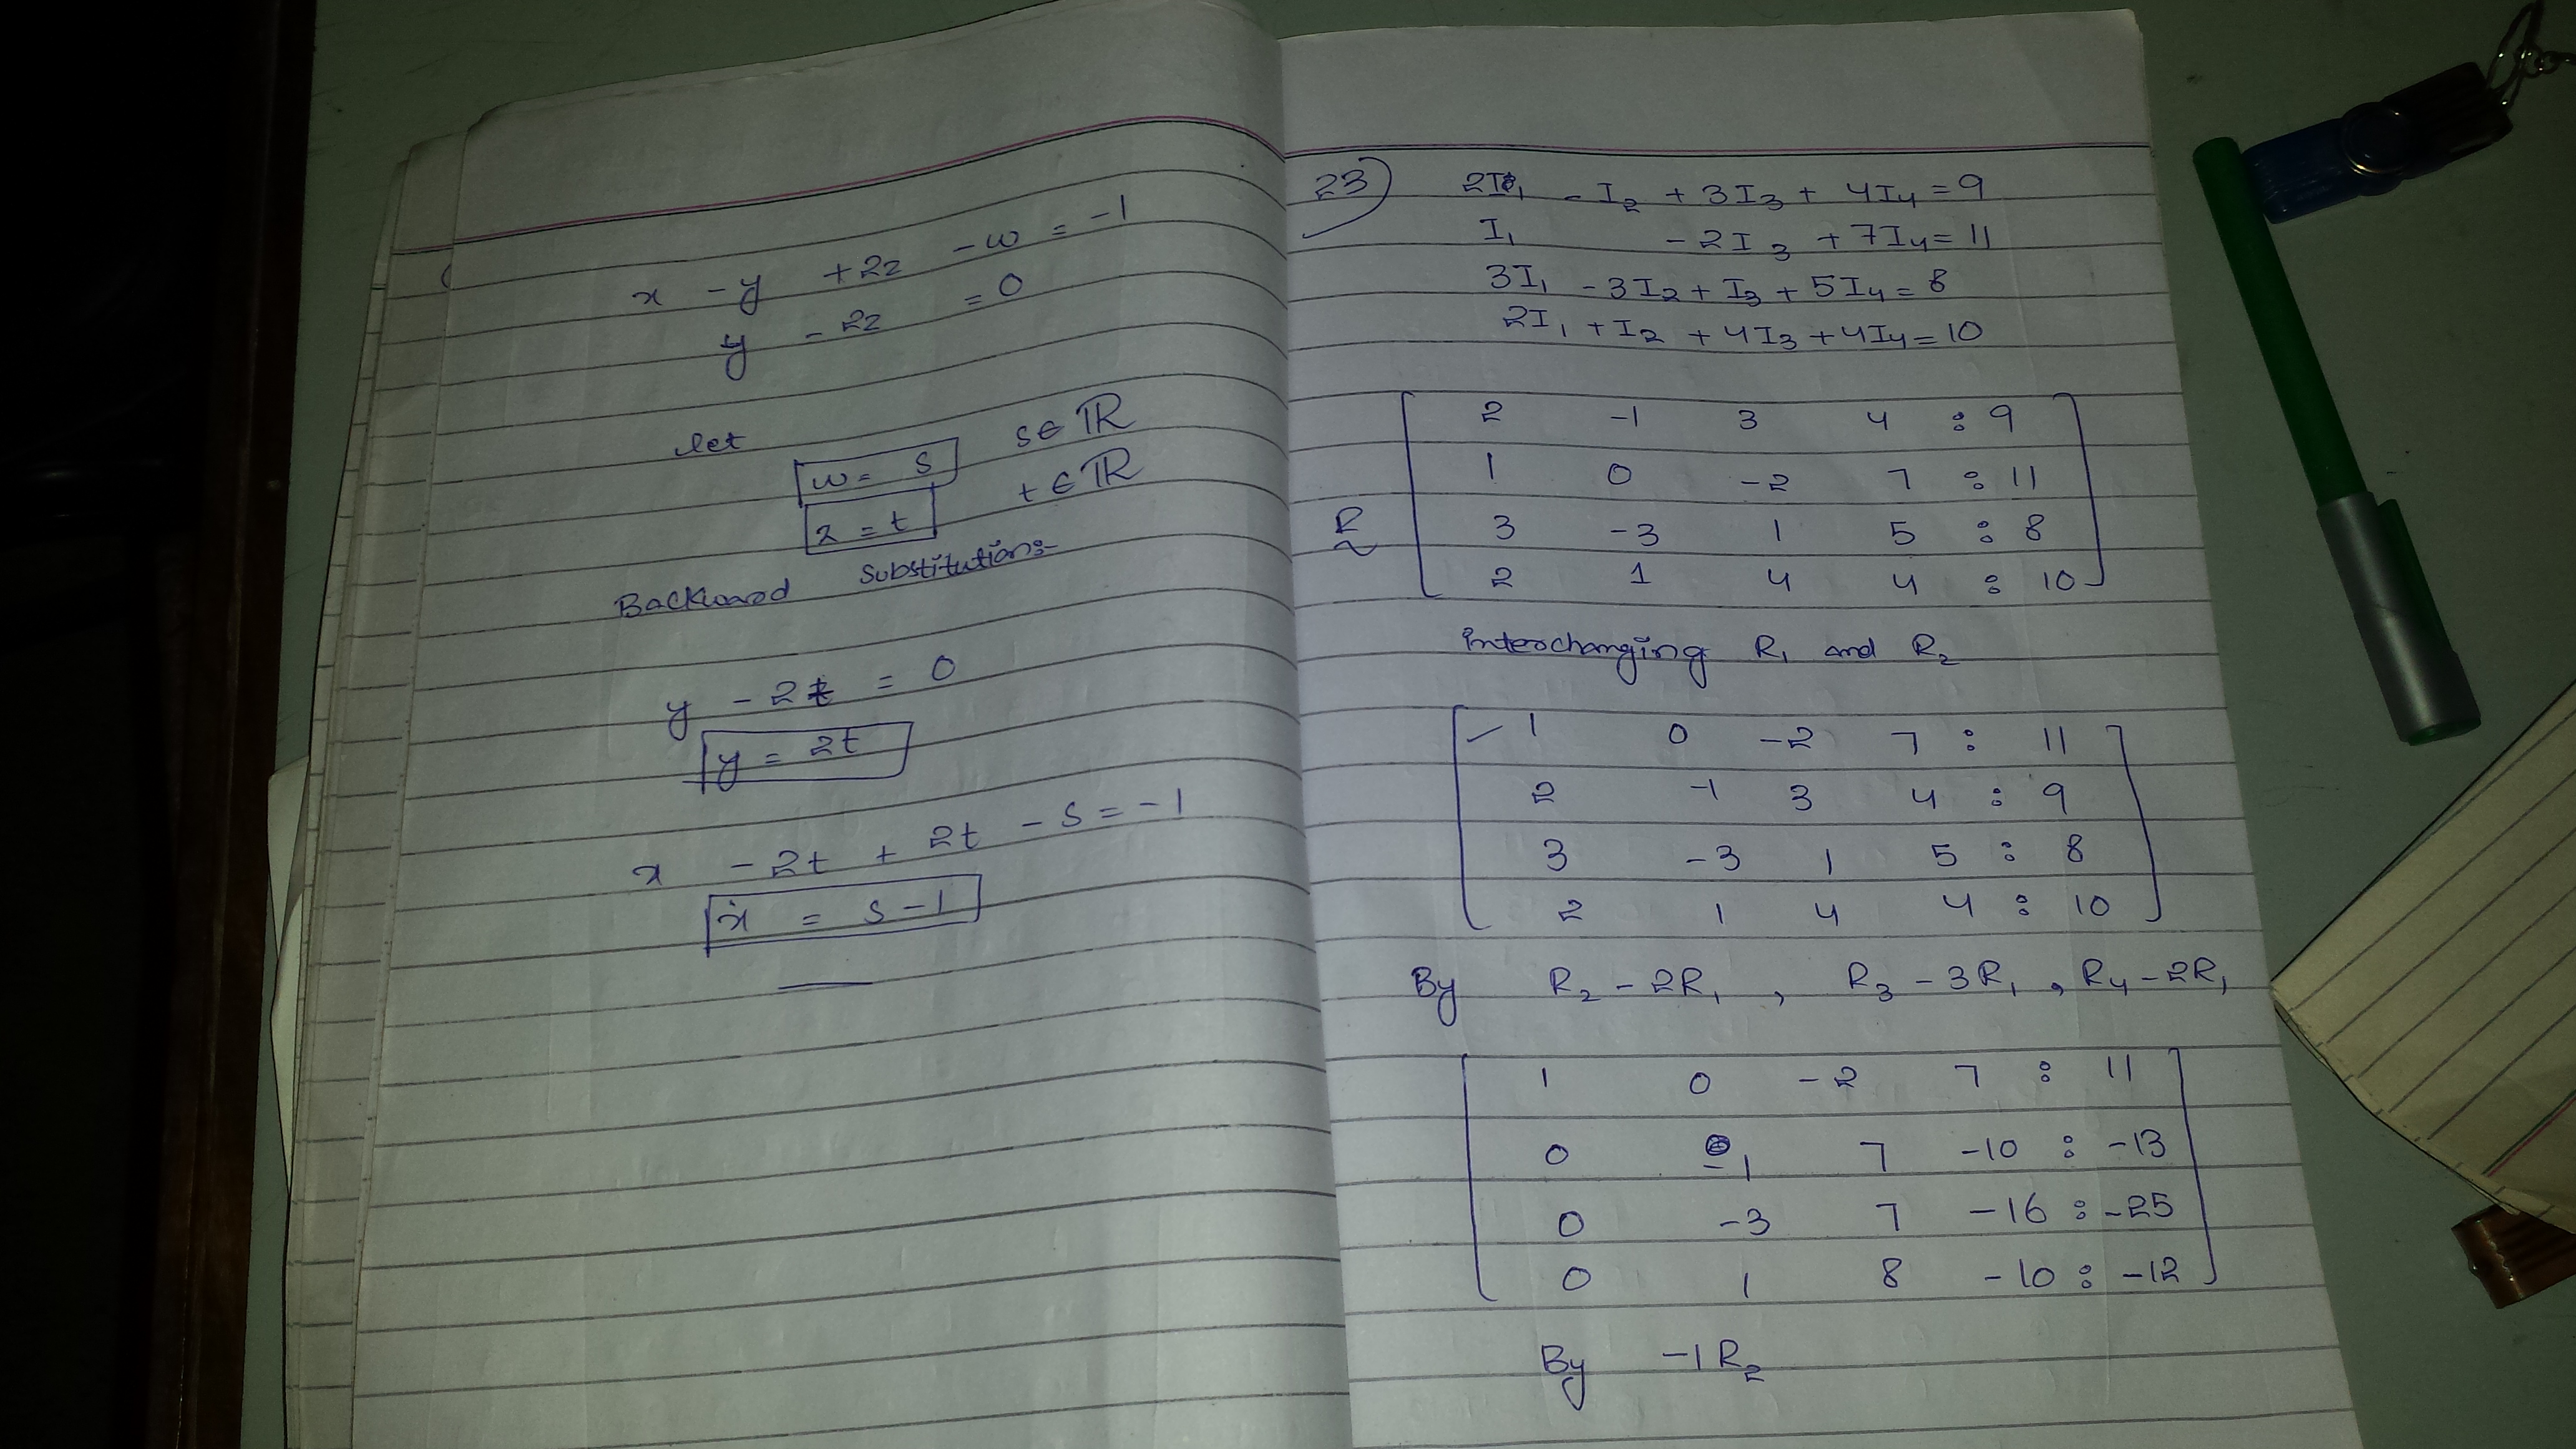 x - y + 2z - w = -1
y - 2z = 0
let w = s s ∈ ℝ
z = t t ∈ ℝ
Backward Substitution:-
y - 2t = 0
y = 2t
x - 2t + 2t - s = -1
x = s - 1
23) 2I₁ - I₂ + 3I₃ + 4I₄ = 9
I₁ - 2I₃ + 7I₄ = 11
3I₁ - 3I₂ + I₃ + 5I₄ = 8
2I₁ + I₂ + 4I₃ + 4I₄ = 10
2 -1 3 4 : 9
1 0 -2 7 : 11
R ~ 3 -3 1 5 : 8
2 1 4 4 : 10
Interchanging R₁ and R₂
1 0 -2 7 : 11
2 -1 3 4 : 9
3 -3 1 5 : 8
2 1 4 4 : 10
By R₂ - 2R₁ , R₃ - 3R₁ , R₄ - 2R₁
1 0 -2 7 : 11
0 -1 7 -10 : -13
0 -3 7 -16 : -25
0 1 8 -10 : -12
By -1R₂